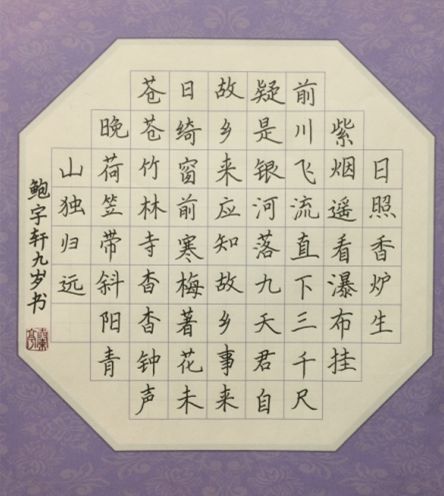 日照香炉生
紫烟遥看瀑布挂
前川飞流直下三千尺
疑是银河落九天君自
故乡来应知故乡事来
日绮窗前寒梅著花未
苍苍竹林寺杳杳钟声
晚荷笠带斜阳青
山独归远
鲍宇轩九岁书